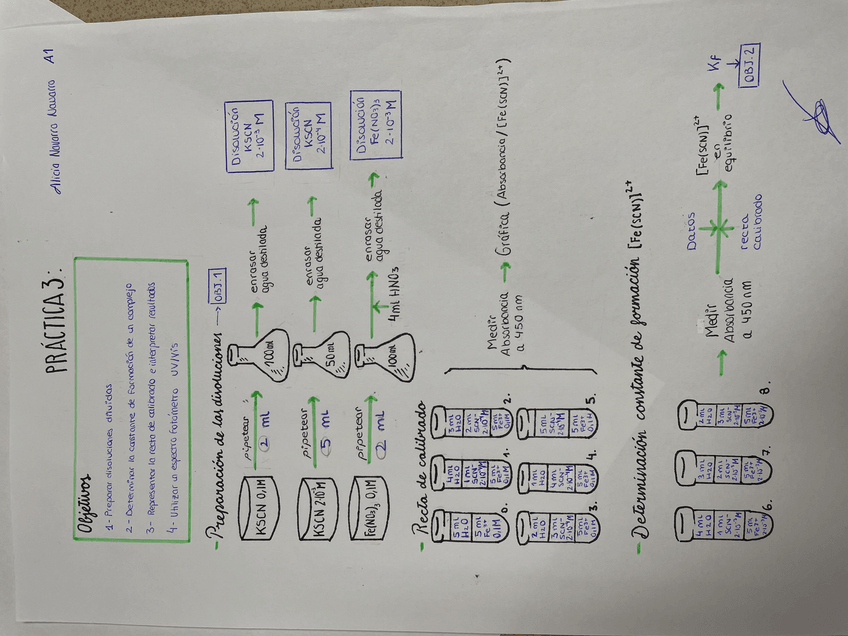 Alicia Navarro Navarro A1
PRÁCTICA 3:
Objetivos
1- Preparar disoluciones diluidas
2- Determinar la constante de formación de un complejo
3- Representar la recta de calibrado e interpretar resultados
4- Utilizar un espectro fotómetro UV/Vis
- Preparación de las disoluciones → OBJ.1
KSCN 0,1M
pipetear
2 mL
100ml
enrasar
agua destilada
Disolución
KSCN
2·10⁻³ M
KSCN 2·10⁻³M
pipetear
5 mL
50ml
enrasar
agua destilada
Disolución
KSCN
2·10⁻⁴ M
Fe(NO3)3 0,1M
pipetear
2 mL
100ml
4ml HNO3
enrasar
agua destilada
Disolución
Fe(NO3)3
2·10⁻³ M
- Recta de calibrado
5 ml
H2O
5 ml
Fe³⁺
0,1M
0.
4 ml
H2O
1 ml
SCN⁻
2·10⁻⁴M
5 ml
Fe³⁺
0,1M
1.
3 ml
H2O
2 ml
SCN⁻
2·10⁻⁴M
5 ml
Fe³⁺
0,1M
2.
2 ml
H2O
3 ml
SCN⁻
2·10⁻⁴M
5 ml
Fe³⁺
0,1M
3.
1 ml
H2O
4 ml
SCN⁻
2·10⁻⁴M
5 ml
Fe³⁺
0,1M
4.
5 ml
SCN⁻
2·10⁻⁴M
5 ml
Fe³⁺
0,1M
5.
Medir
Absorbancia → Gráfica (Absorbancia/[Fe(SCN)]²⁺)
a 450 nm
- Determinación constante de formación [Fe(SCN)]²⁺
4 ml
H2O
1 ml
SCN⁻
2·10⁻³M
5 ml
Fe³⁺
2·10⁻³M
6.
3 ml
H2O
2 ml
SCN⁻
2·10⁻³M
5 ml
Fe³⁺
2·10⁻³M
7.
2 ml
H2O
3 ml
SCN⁻
2·10⁻³M
5 ml
Fe³⁺
2·10⁻³M
8.
Medir
Absorbancia
a 450 nm
Datos
recta
calibrado
[Fe(SCN)]²⁺
en
equilibrio
Kf
OBJ.2